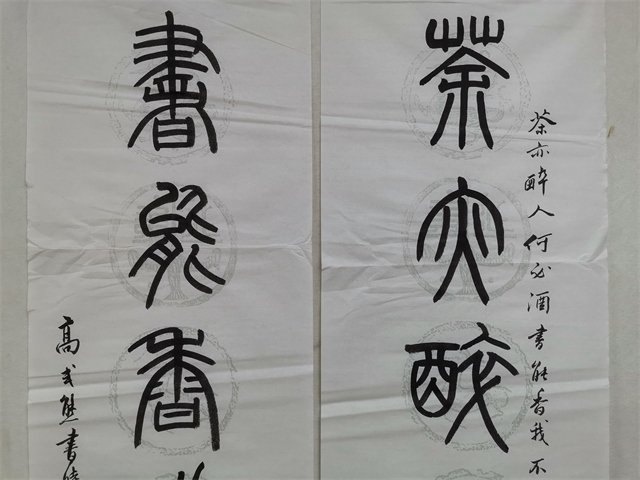 茶亦醉
茶亦醉人何必酒书能香我不
書能香
高式熊書